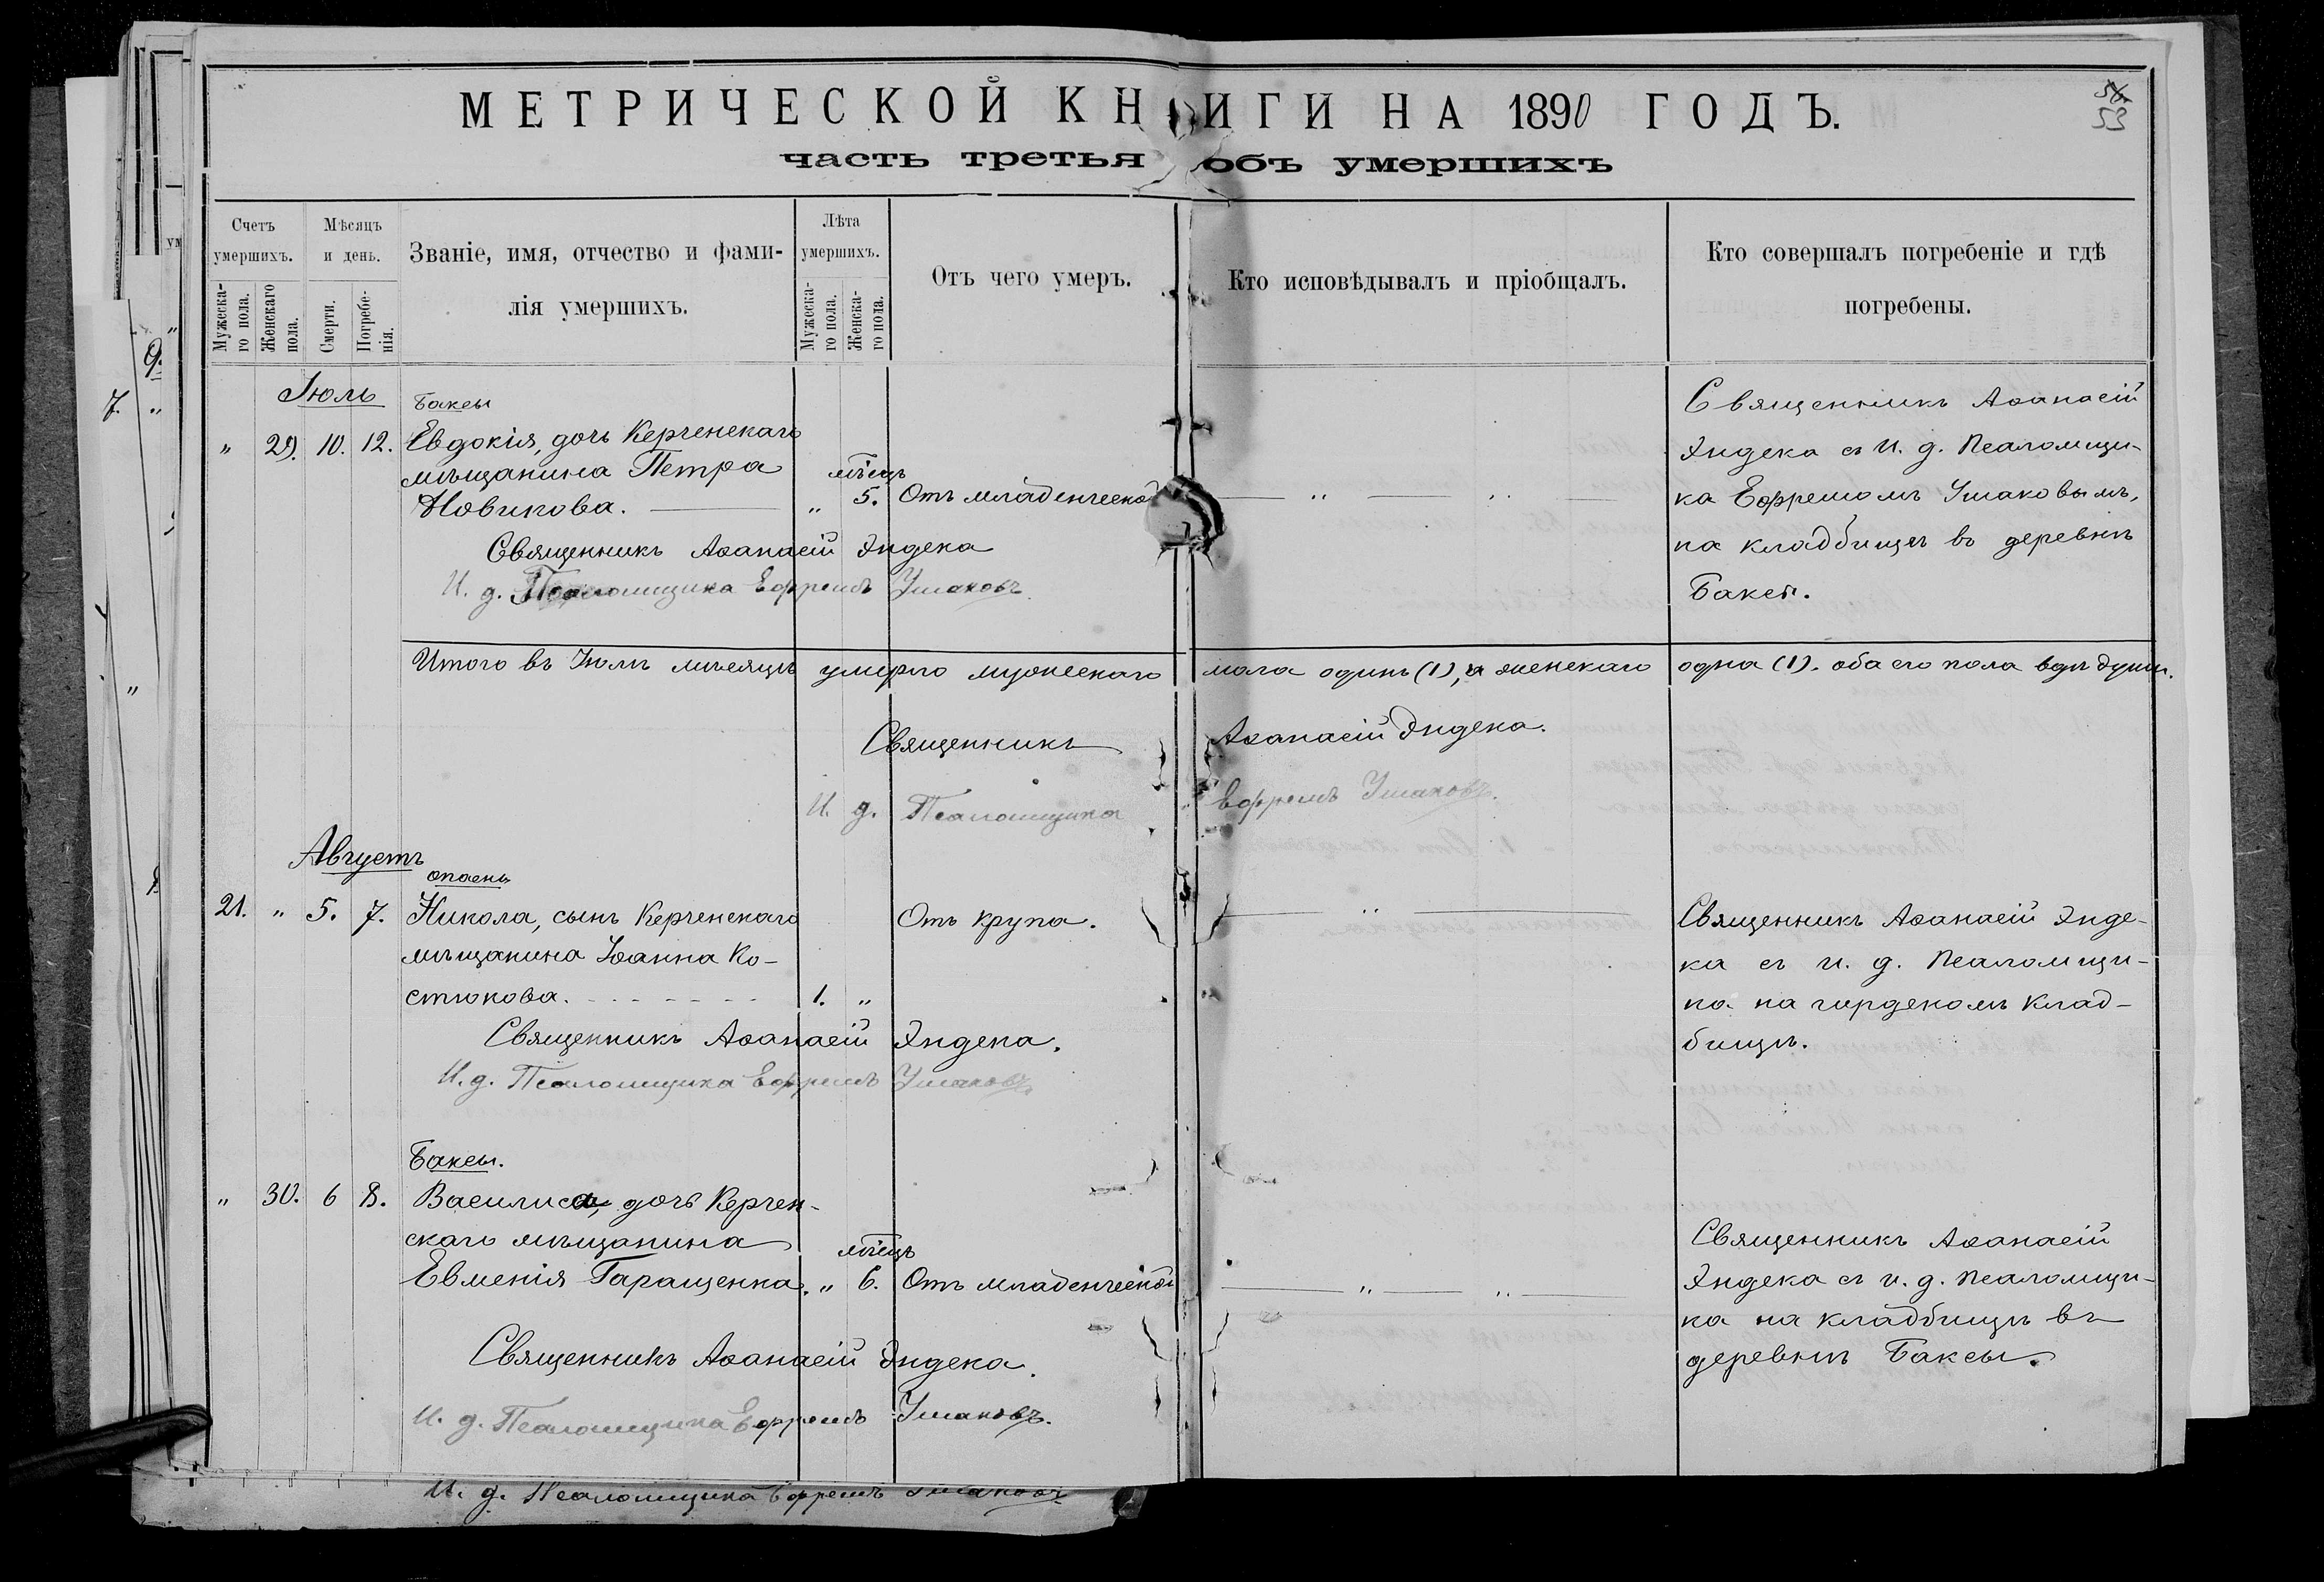 МЕТРИЧЕСКОЙ КНИГИ НА 1890 ГОДЪ.
53
часть третья объ умершихъ
Счетъ умершихъ.
Мужескаго пола.
Женскаго пола.
Мѣсяцъ и день.
Смерти.
Погребенія.
Званіе, имя, отчество и фами-
лія умершихъ.
Лѣта умершихъ.
Мужеска-го пола.
Женска-го пола.
Отъ чего умеръ.
Кто исповѣдывалъ и пріобщалъ.
Кто совершалъ погребеніе и гдѣ
погребены.
Іюль
Баксы
" 29. 10. 12. Евдокія, дочь Керченскаго
мѣщанина Петра
мѣсцъ
Новикова. " 5. Отъ младенческой
Священникъ Аѳанасій Эндека
И. д. Псаломщика Ефремъ Ушаковъ.
Священникъ Аѳанасій
Эндека съ И. д. Псаломщи-
ка Ефремомъ Ушаковымъ,
на кладбищѣ въ деревнѣ
Баксы.
Итого въ Іюлѣ мѣсяцѣ умерло мужескаго пола одинъ (1), а женскаго одна (1). обаего пола двѣ души.
Священникъ Аѳанасій Эндека.
И. д. Псаломщика Ефремъ Ушаковъ.
Августъ
21. " 5. 7. Никола, сынъ Керченскаго Отъ крупа.
мѣщанина Іоанна Ко-
стюкова. 1. "
Священникъ Аѳанасій Эндека.
И. д. Псаломщика Ефремъ Ушаковъ.
Священникъ Аѳанасій Энде-
ка съ и. д. Псаломщи-
ка на городскомъ клад-
бищѣ.
Баксы.
" 30. 6 8. Василиса, дочь Керчен-
скаго мѣщанина
мѣсцъ
Евменія Таращенка. " 6. Отъ младенческой
Священникъ Аѳанасій Эндека.
И. д. Псаломщика Ефремъ Ушаковъ.
Священникъ Аѳанасій
Эндека съ и. д. Псаломщи-
ка на кладбищѣ въ
деревнѣ Баксы.
И. д. Псаломщика Ефремъ Ушаковъ